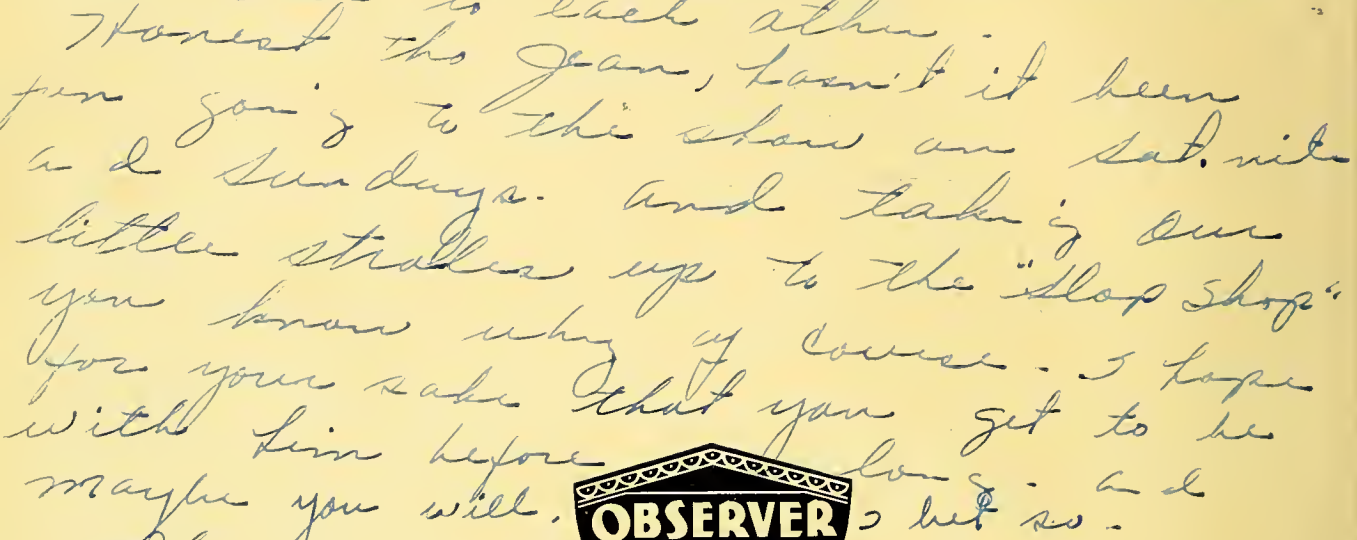 to each other.
Honest tho Jean, hasn't it been
fun going to the show on sat. nite
and sundays. and taking our
little strolles up to the "Slop Shop"
you know why of course. I hope
for your sake that you get to be
with him before long. and
maybe you will. I bet so.
OBSERVER